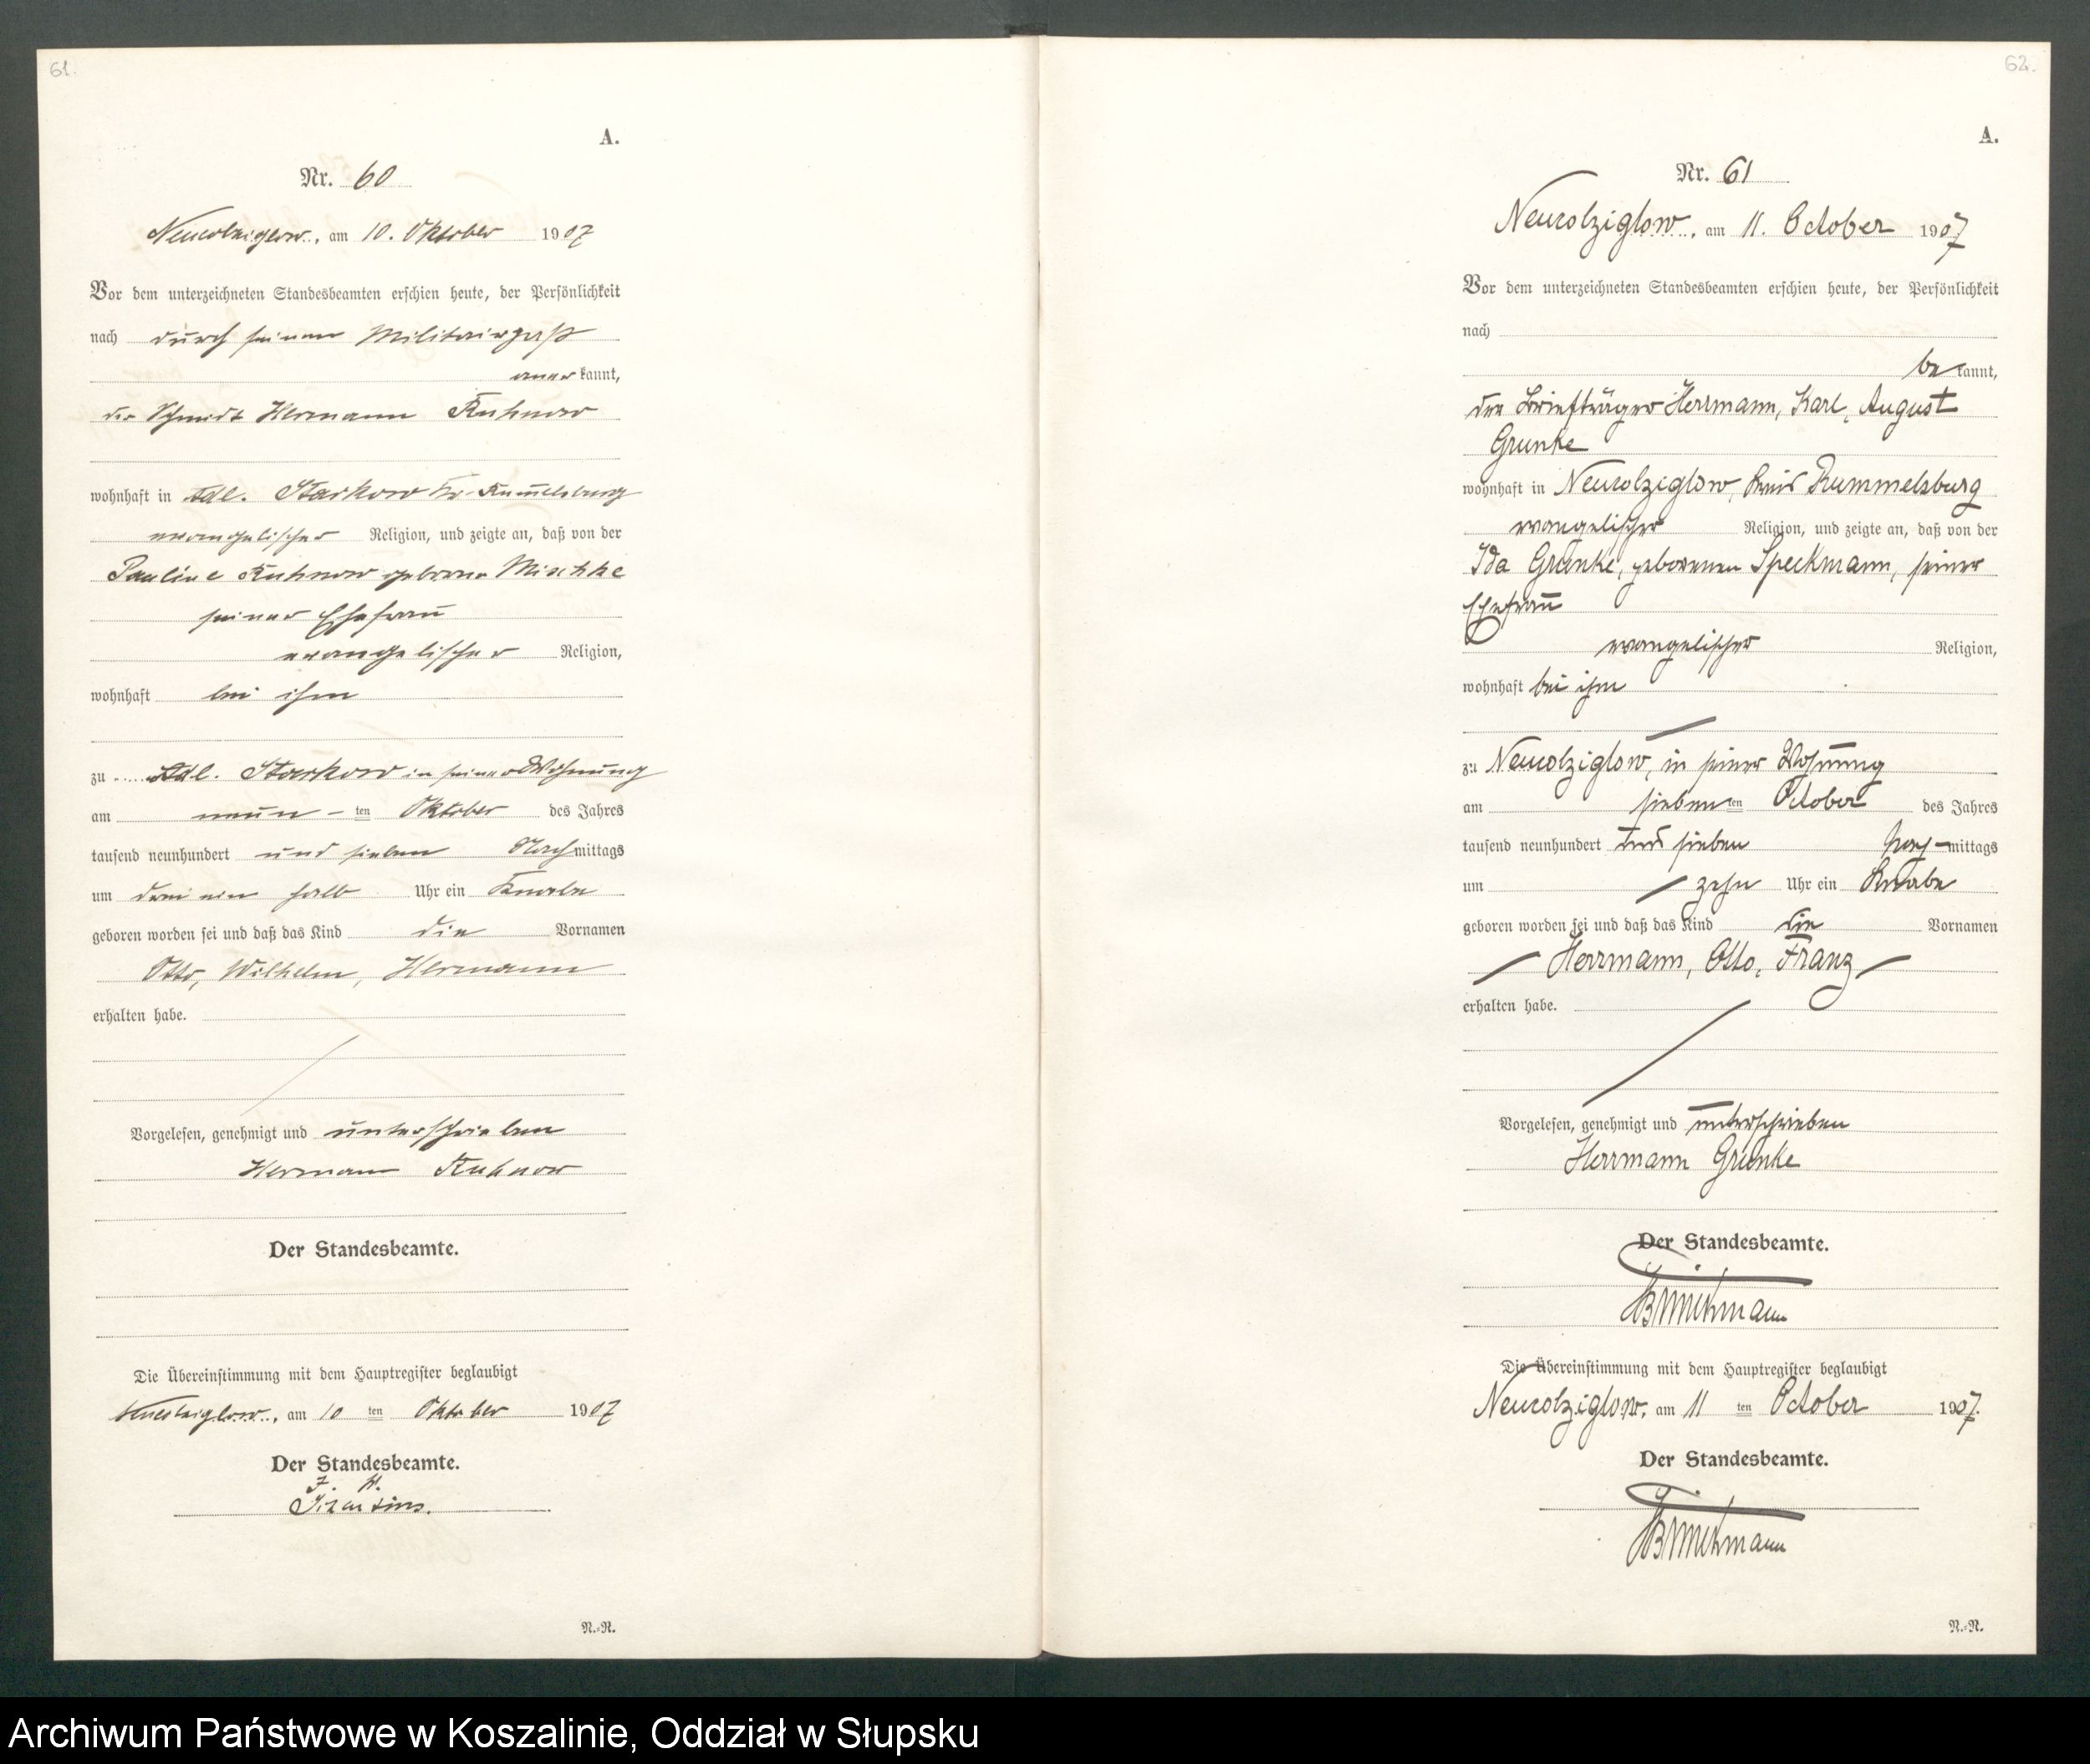 61.
A.
Nr. 60
Neukolziglow, am 10. Oktober 1907
Vor dem unterzeichneten Standesbeamten erschien heute, der Persönlichkeit
nach durch seinen Militairpaß
aner kannt,
der Schmidt Hermann Kuhnow
wohnhaft in Adl. Starkow Kr. Rummelsburg
evangelischer Religion, und zeigte an, daß von der
Pauline Kuhnow geborne Mischke
seiner Ehefrau
evangelischer Religion,
wohnhaft bei ihm
zu Adl. Starkow in seiner Wohnung
am neun - ten Oktober des Jahres
tausend neunhundert und sieben Nachmittags
um drei ein halb Uhr ein Knabe
geboren worden sei und daß das Kind die Vornamen
Otto, Wilhelm, Hermann
erhalten habe.
Vorgelesen, genehmigt und unterschrieben
Hermann Kuhnow
Der Standesbeamte.
Die Übereinstimmung mit dem Hauptregister beglaubigt
Neukolziglow, am 10 ten Oktober 1907
Der Standesbeamte.
N.=N.
62.
A.
Nr. 61
Neucolziglow, am 11. October 1907
Vor dem unterzeichneten Standesbeamten erschien heute, der Persönlichkeit
nach
be kannt,
der Briefträger Herrmann, Karl, August
Grunke
wohnhaft in Neucolziglow, Kreis Rummelsburg
evangelischer Religion, und zeigte an, daß von der
Ida Grunke, geborenen Speckmann, seiner
Ehefrau
evangelischer Religion,
wohnhaft bei ihm
zu Neucolziglow, in seiner Wohnung
am sieben ten October des Jahres
tausend neunhundert und sieben Nach-mittags
um zehn Uhr ein Knabe
geboren worden sei und daß das Kind die Vornamen
Herrmann, Otto, Franz
erhalten habe.
Vorgelesen, genehmigt und unterschrieben
Herrmann Grunke
Der Standesbeamte.
Die Übereinstimmung mit dem Hauptregister beglaubigt
Neucolziglow, am 11 ten October 1907.
Der Standesbeamte.
N.=N.
Archiwum Państwowe w Koszalinie, Oddział w Słupsku